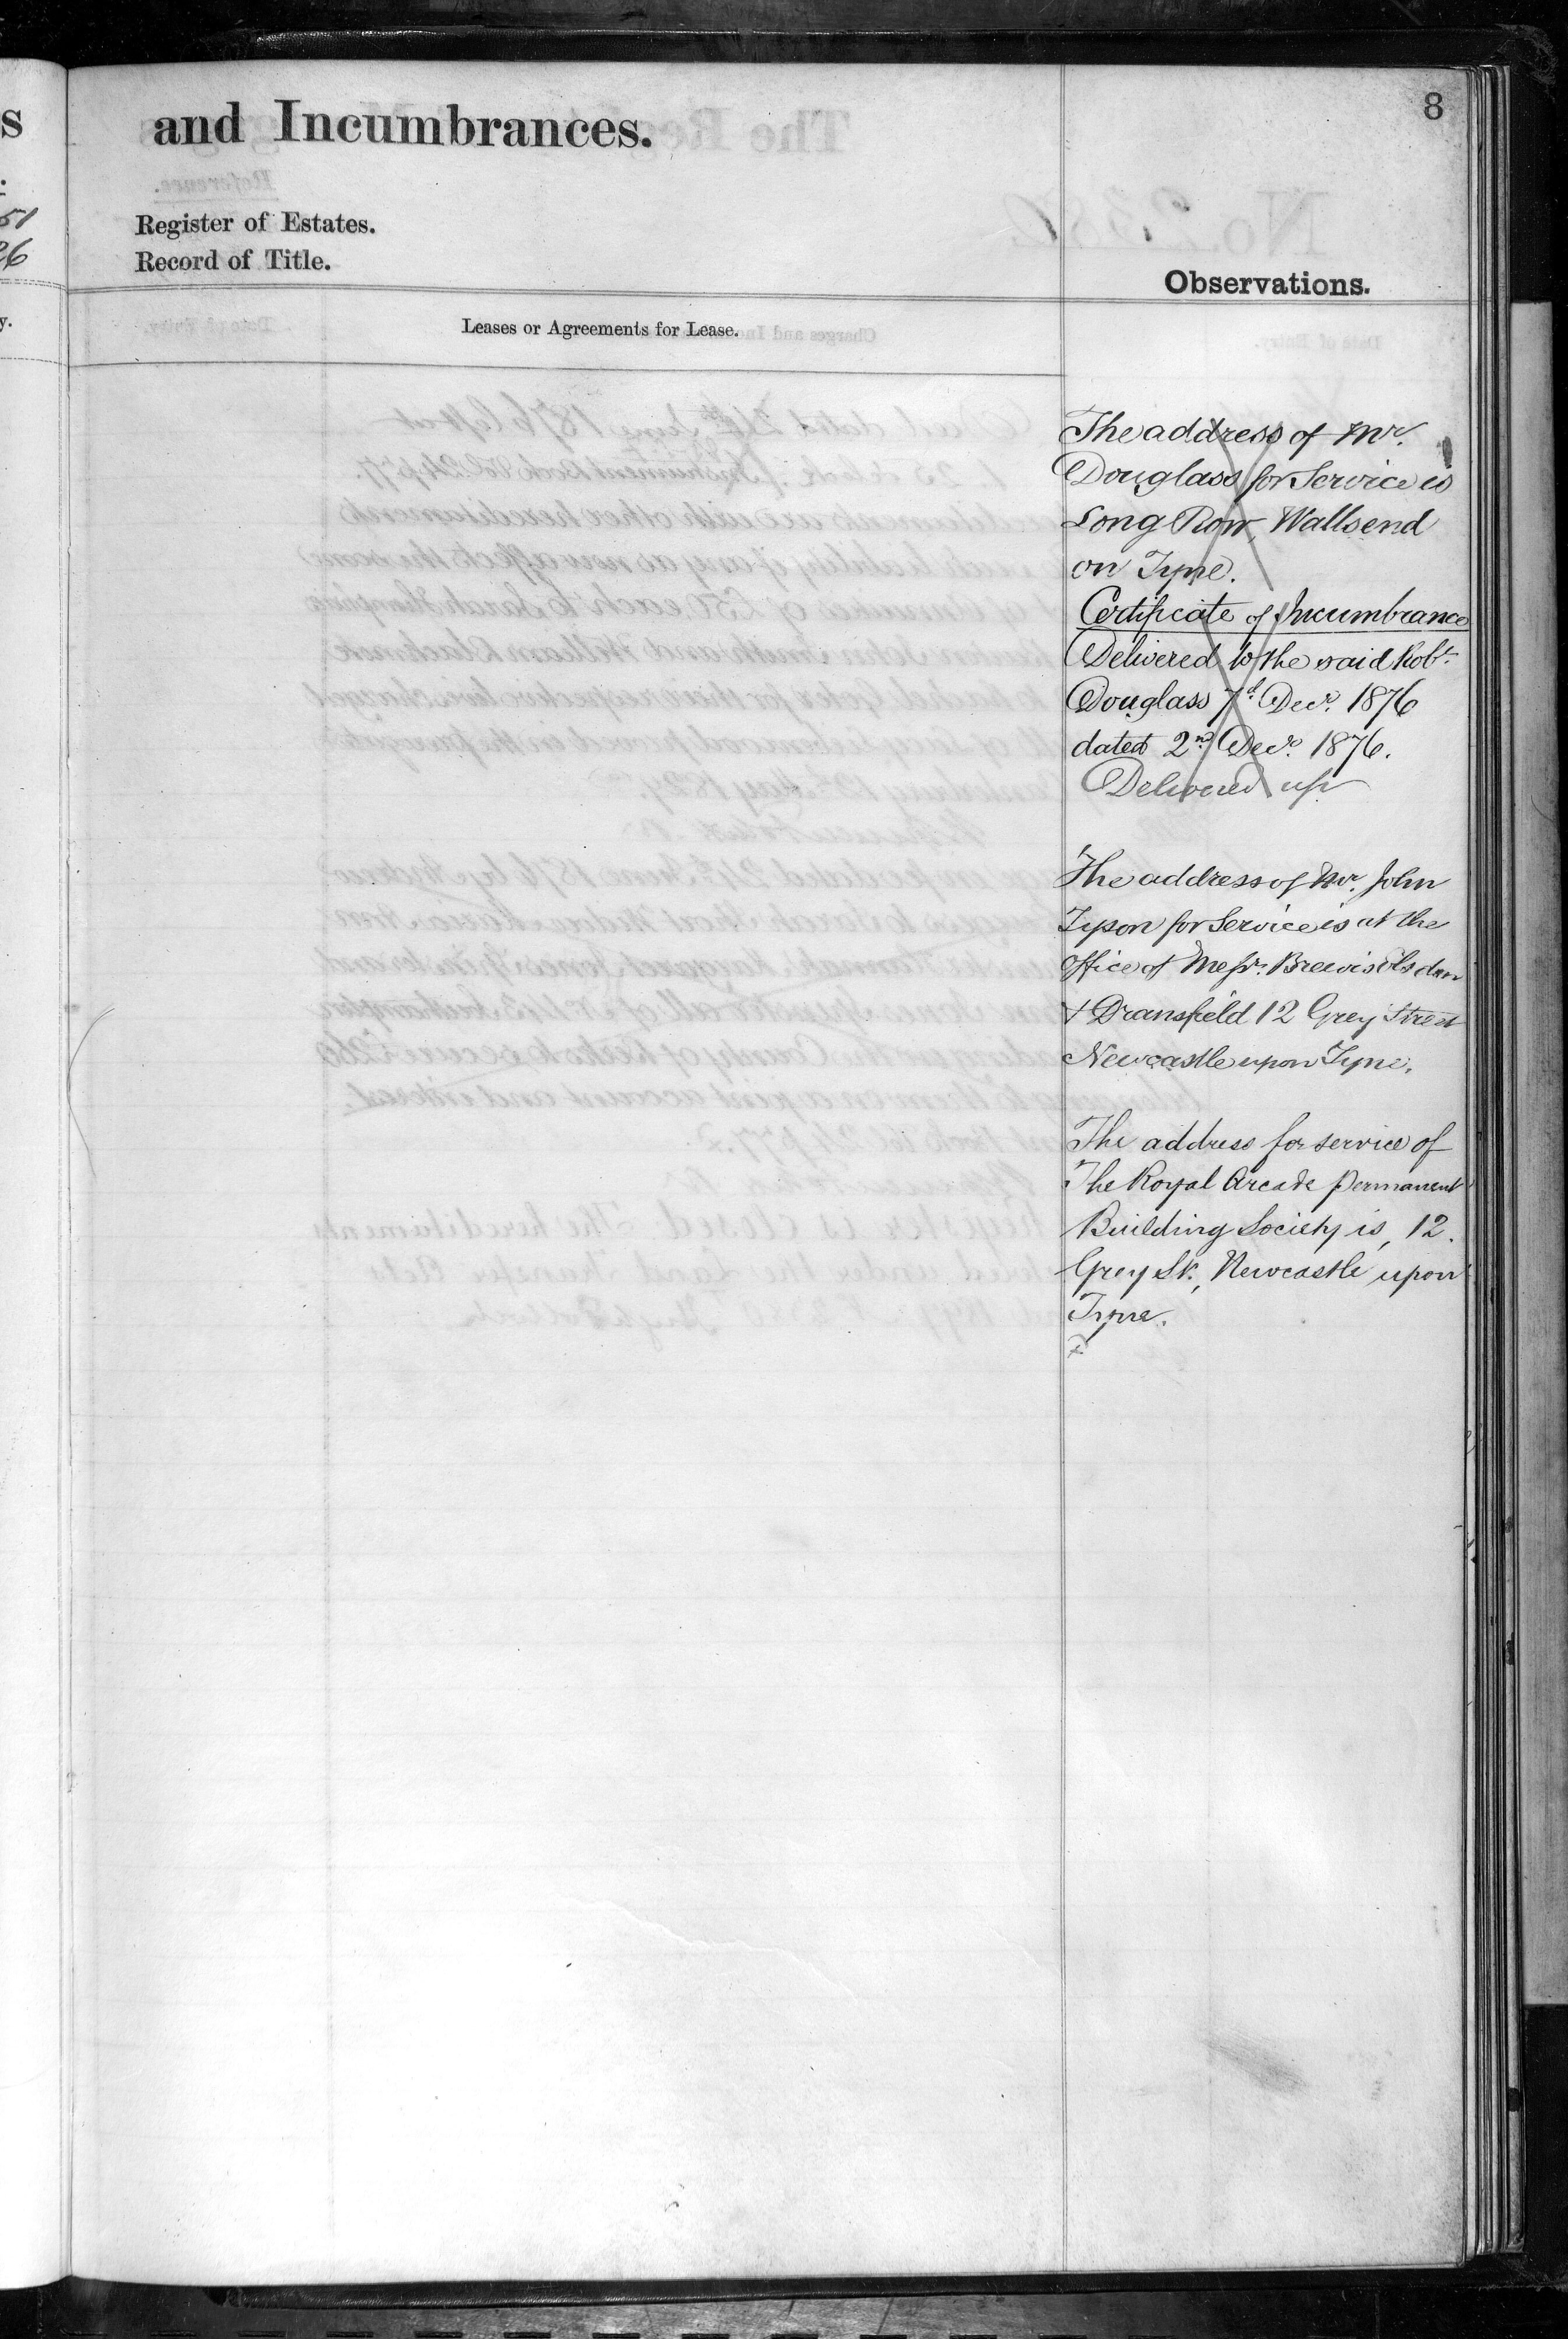 8
and Incumbrances.
Register of Estates.
Record of Title.
Observations.
Leases or Agreements for Lease.
The address of Mr.
Douglass for Service is
Long Row, Wallsend
on Tyne.
Certificate of Incumbrance
Delivered to the said Robt.
Douglass 7th Decr. 1876
dated 2nd Decr. 1876.
Delivered up
The address of Mr. John
Tyson for Service is at the
Office of Messrs. Brewis Elsdon
& Dransfield 12 Grey Street
Newcastle upon Tyne.
The address for service of
The Royal Arcade Permanent
Building Society is, 12.
Grey St., Newcastle upon
Tyne.